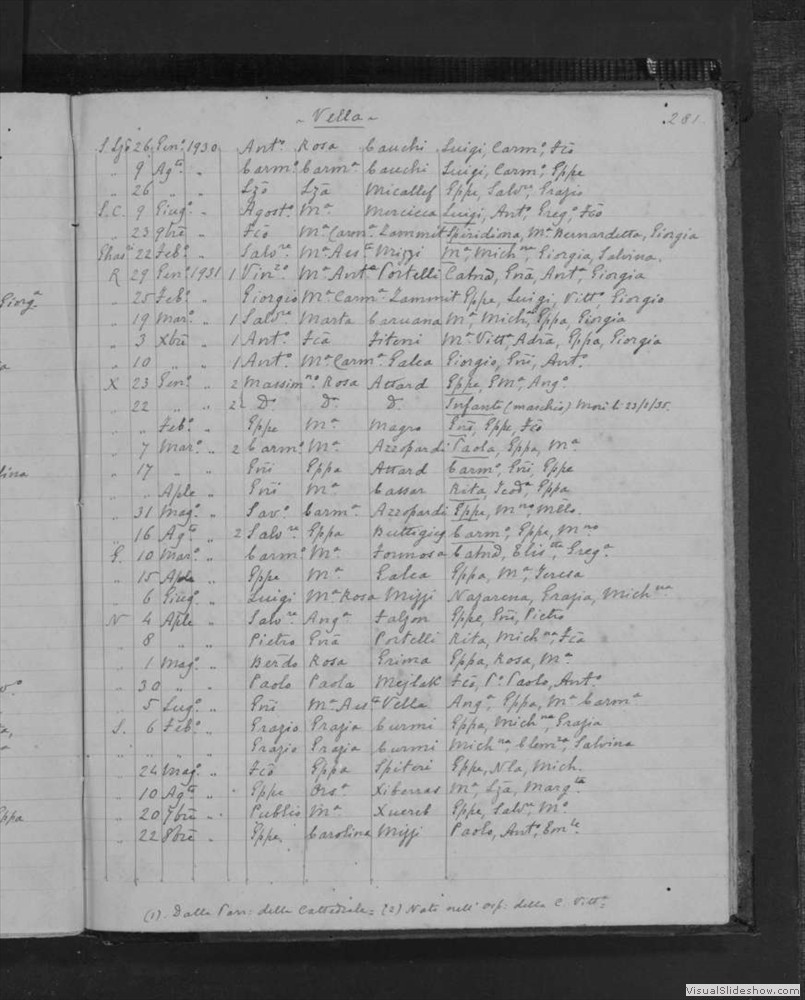 - Vella -
281
S. Lzō 26 Genº 1930 Antº Rosa Cauchi Luigi, Carmº, Fcō
" 9 Agto " Carmº Carmª Cauchi Luigi, Carmº, Gppe
" 26 " " Lzō Lzā Micallef Gppe, Salvre, Grazio
S.C. 9 Giugº " Agostº Mª Mercieca Luigi, Antº, Gregº, Fcō
" 23 9brē " Fcō Mª Carmª Zammit Spiridiona, Mª Bernardetta, Giorgia
22 Febº " Salvre Mª Assta Mizzi Mª, Michna, Giorgia, Salvina.
R 29 Genº 1931 1 Vinzº Mª Antª Portelli Catnā, Gnā, Antª, Giorgia
" 25 Febº " Giorgio Mª Carmª Zammit Gppe, Luigi, Vittº, Giorgio
" 19 Marº " 1 Salvre Marta Caruana Mª, Michna, Gppa, Giorgia
" 3 Xbrē " 1 Antº Fcā Fiteni Mª Vittª, Adra, Gppa, Giorgia
" 10 " " 1 Antº Mª Carmª Galea Giorgio, Gnī, Antº
X 23 Genº " 2 Massimno Rosa Attard Gppe, Angº
" 22 " " 2 Dº Dª D. Infante (maschio) Morì li 23/1/35.
" " Febº " Gppe Mª Magro Gnō, Gppe, Fcō
" 7 Marº " 2 Carmº Mª Azzopardi Paola, Gppa, Mª
" 17 " " Gnī Gppa Attard Carmº, Gnī, Gppe
" " Aple " Gnī Mª Cassar Rita, Teodª, Gppa
" 31 Magº " Savº Carmª Azzopardi Gppe, Mno,
" 16 Agto " 2 Salvre Gppa Buttigieg Carmº, Gppe, Mno
G. 10 Marº " Carmº Mª Formosa Catnā, Elistta, Gregª
" 15 Aple " Gppe Mª Galea Gppa, Mª, Teresa
" 6 Giugº " Luigi Mª Rosa Mizzi Nazarena, Grazia, Michna
N 4 Aple " Salvre Angª Falzon Gppe, Gnī, Pietro
" 8 " " Pietro Gnā Portelli Rita, Michna, Fcā
" 1 Magº " Berdo Rosa Grima Gppa, Rosa, Mª
" 30 " " Paolo Paola Mejlak Fcō, Pº Paolo, Antº
" 5 Lugº " Gnī Mª Assta Vella Angª, Gppa, Mª Carmª
S. 6 Febº " Grazio Grazia Curmi Gppa, Michna, Grazia
" " " " Grazio Grazia Curmi Michna, Clemza, Salvina
" 24 Magº " Fcō Gppa Spiteri Gppe, Nla, Mich.
" 10 Agto " Gppe Orsª Xiberras Mª, Lza, Margta
" 20 7brē " Publio Mª Xuereb Gppe, Salvre, Mº
" 22 8brē " Gppe Carolina Mizzi Paolo, Antº, Emle
(1). Dalla Parr: della Cattedrale = (2) Nati nell' Osp: della C. Vittª =
VisualSlideshow.com